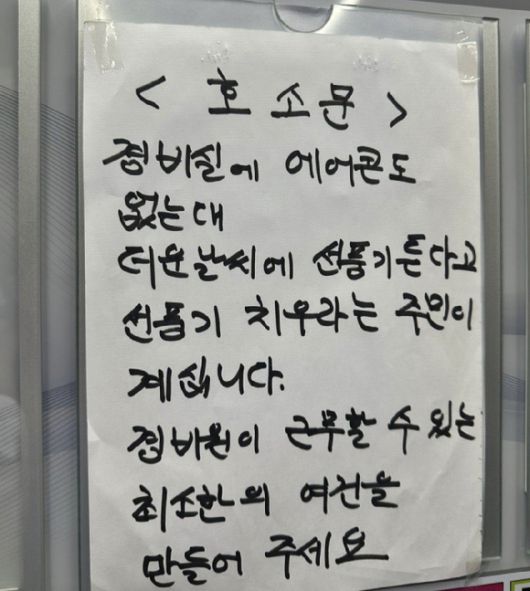 < 호 소 문 >
경비실에 에어콘도
없는대
더운날씨에 선풍기튼다고
선풍기 치우라는 주민이
계십니다.
경비원이 근무할 수 있는
최소한의 여건을
만들어 주세요